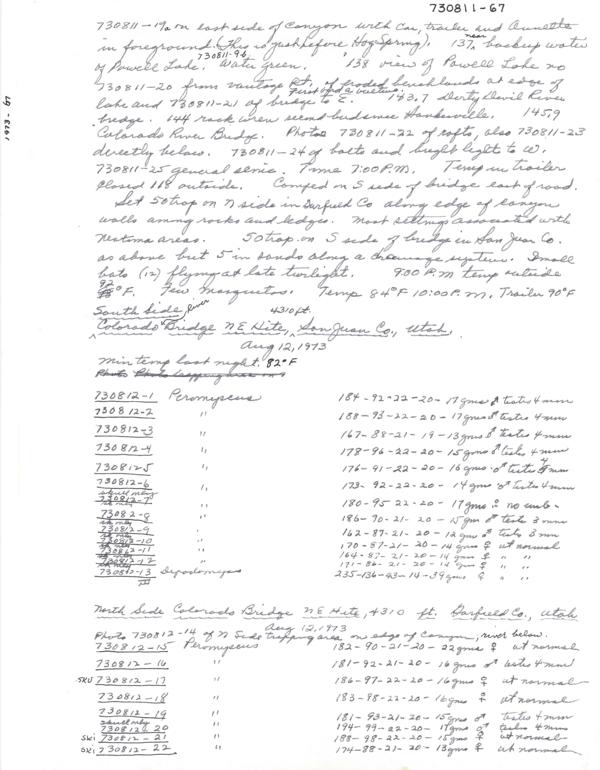 730811-67
67-1973
730811-19a on east side of canyon with car, trailer and Annetta
in foreground. (This is just before Hog Spring). 137 near backup water
of Powell Lake. 730811-9b Water green. 138 view of Powell Lake no
730811-20 from vantage Pt. of eroded bench lands at edge of
lake and 730811-21 of bridge to E. 143.7 Dirty Devil River
bridge. 144 rock wren second Hanksville. 145.9
Colorado River Bridge. Photos 730811-22 of rafts, also 730811-23
directly below. 730811-24 of boats and bright light to W.
730811-25 general scene. Time 7:00 P.M. Temp in trailer
closed 118 outside. Camped on S side of bridge east of road.
Set 50 trap on N side in Garfield Co along edge of canyon
walls among rocks and ledges. Most settings associated with
Neotoma areas. 50 trap on S side of bridge in San Juan Co.
as above but 5 in sands along a drainage system. Small
bats (12) flying at late twilight. 9:00 P.M temp outside
92°F. Few mosquitoes. Temp 84°F 10:00 P.M. Trailer 90°F
South Side river 4310 ft.
Colorado Bridge NE Hite, San Juan Co., Utah.
Aug 12, 1973
Min temp last night. 82°F
730812-1 Peromyscus 184-92-22-20-17 gms ♂ testes 4 mm
730812-2 " 188-93-22-20-17 gms ♂ testes 4 mm
730812-3 " 167-88-21-19-13 gms ♂ testes 4 mm
730812-4 " 178-96-22-20-15 gms ♂ testes 4 mm
730812-5 " 176-91-22-20-16 gms ♂ testes 4 mm
730812-6 " 173-92-22-20-14 gms ♂ testes 4 mm
skull only
730812-7 " 180-95-22-20-17 gms ♀ no emb.
730812-8 " 186-90-21-20-15 gm ♂ testes 3 mm
730812-9 " 162-87-21-20-12 gms ♂ testes 3 mm
730812-10 " 170-87-21-20-14 gms ♀ ut normal
730812-11 " 164-87-21-20-14 gms ♀ " "
730812-12 " 171-86-21-20-14 gms ♀ " "
730812-13 Dipodomys 235-136-43-14-39 gms ♀ " "
North Side Colorado Bridge NE Hite, 4310 ft. Garfield Co., Utah
Aug 12, 1973
Photo 730812-14 of N Side trapping area on edge of Canyon, river below.
730812-15 Peromyscus 182-90-21-20-22 gms ♀ ut normal
730812-16 " 181-92-21-20-16 gms ♂ testes 4 mm
SKU 730812-17 " 186-97-22-20-16 gms ♀ ut normal
730812-18 " 183-98-22-20-16 gms ♀ ut normal
730812-19 " 181-93-21-20-15 gms ♂ testes 4 mm
skull only
730812-20 " 194-99-22-20-17 gms ♂ testes 4 mm
Ski 730812-21 " 188-98-22-20-15 gms ♀ ut normal
Ski 730812-22 " 174-88-21-20-13 gms ♀ ut normal